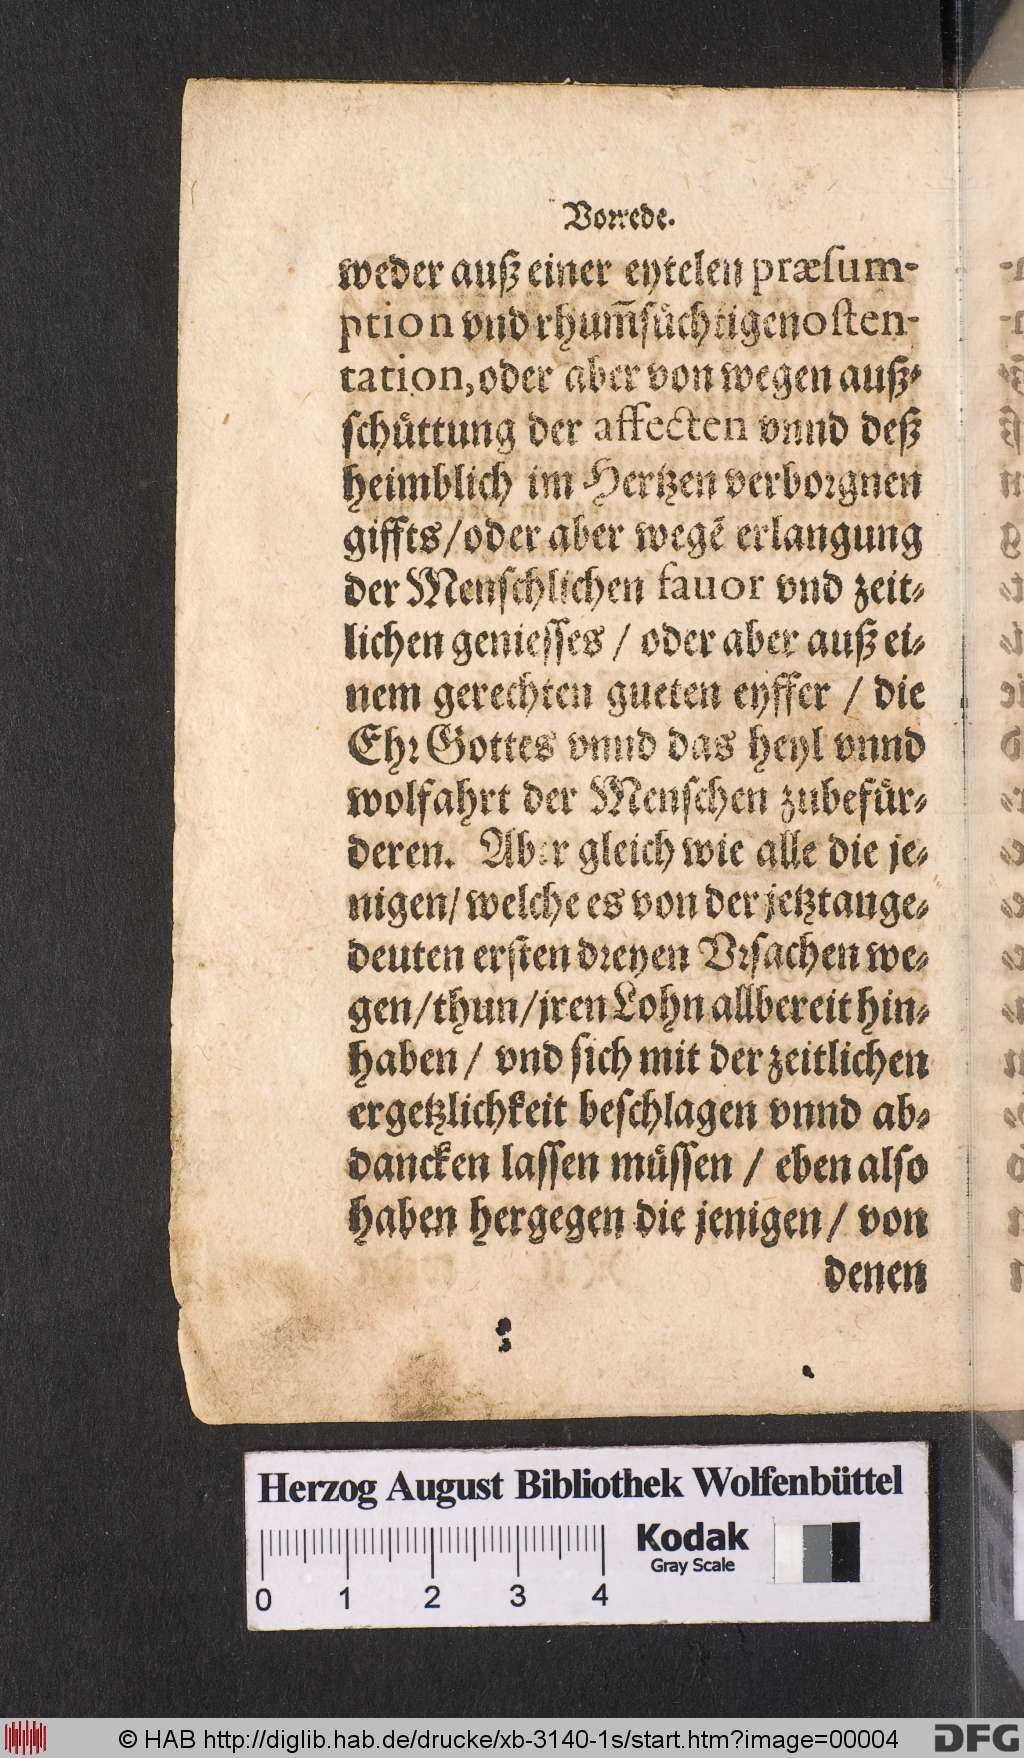 Vorrede.
weder auß einer eytelen præsum-
ption vnd rhum̃süchtigen osten-
tation, oder aber von wegen auß-
schüttung der affecten vnnd deß
heimblich im Hertzen verborgnen
giffts/ oder aber wegẽ erlangung
der Menschlichen fauor vnd zeit-
lichen geniesses / oder aber auß ei-
nem gerechten gueten eyffer / die
Ehr Gottes vnnd das heyl vnnd
wolfahrt der Menschen zubefür-
deren. Aber gleich wie alle die je-
nigen/ welche es von der jetztange-
deuten ersten dreyen Vrsachen we-
gen/ thun/ jren Lohn allbereit hin-
haben / vnd sich mit der zeitlichen
ergetzlichkeit beschlagen vnnd ab-
dancken lassen müssen / eben also
haben hergegen die jenigen / von
denen
Herzog August Bibliothek Wolfenbüttel
Kodak
Gray Scale
0 1 2 3 4
© HAB http://diglib.hab.de/drucke/xb-3140-1s/start.htm?image=00004
DFG